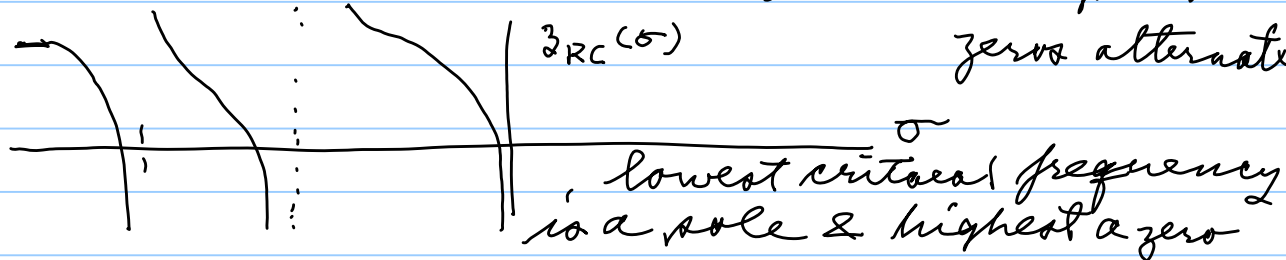 z_RC(σ)
zeros alternate
σ
lowest critical frequency
is a pole & highest a zero